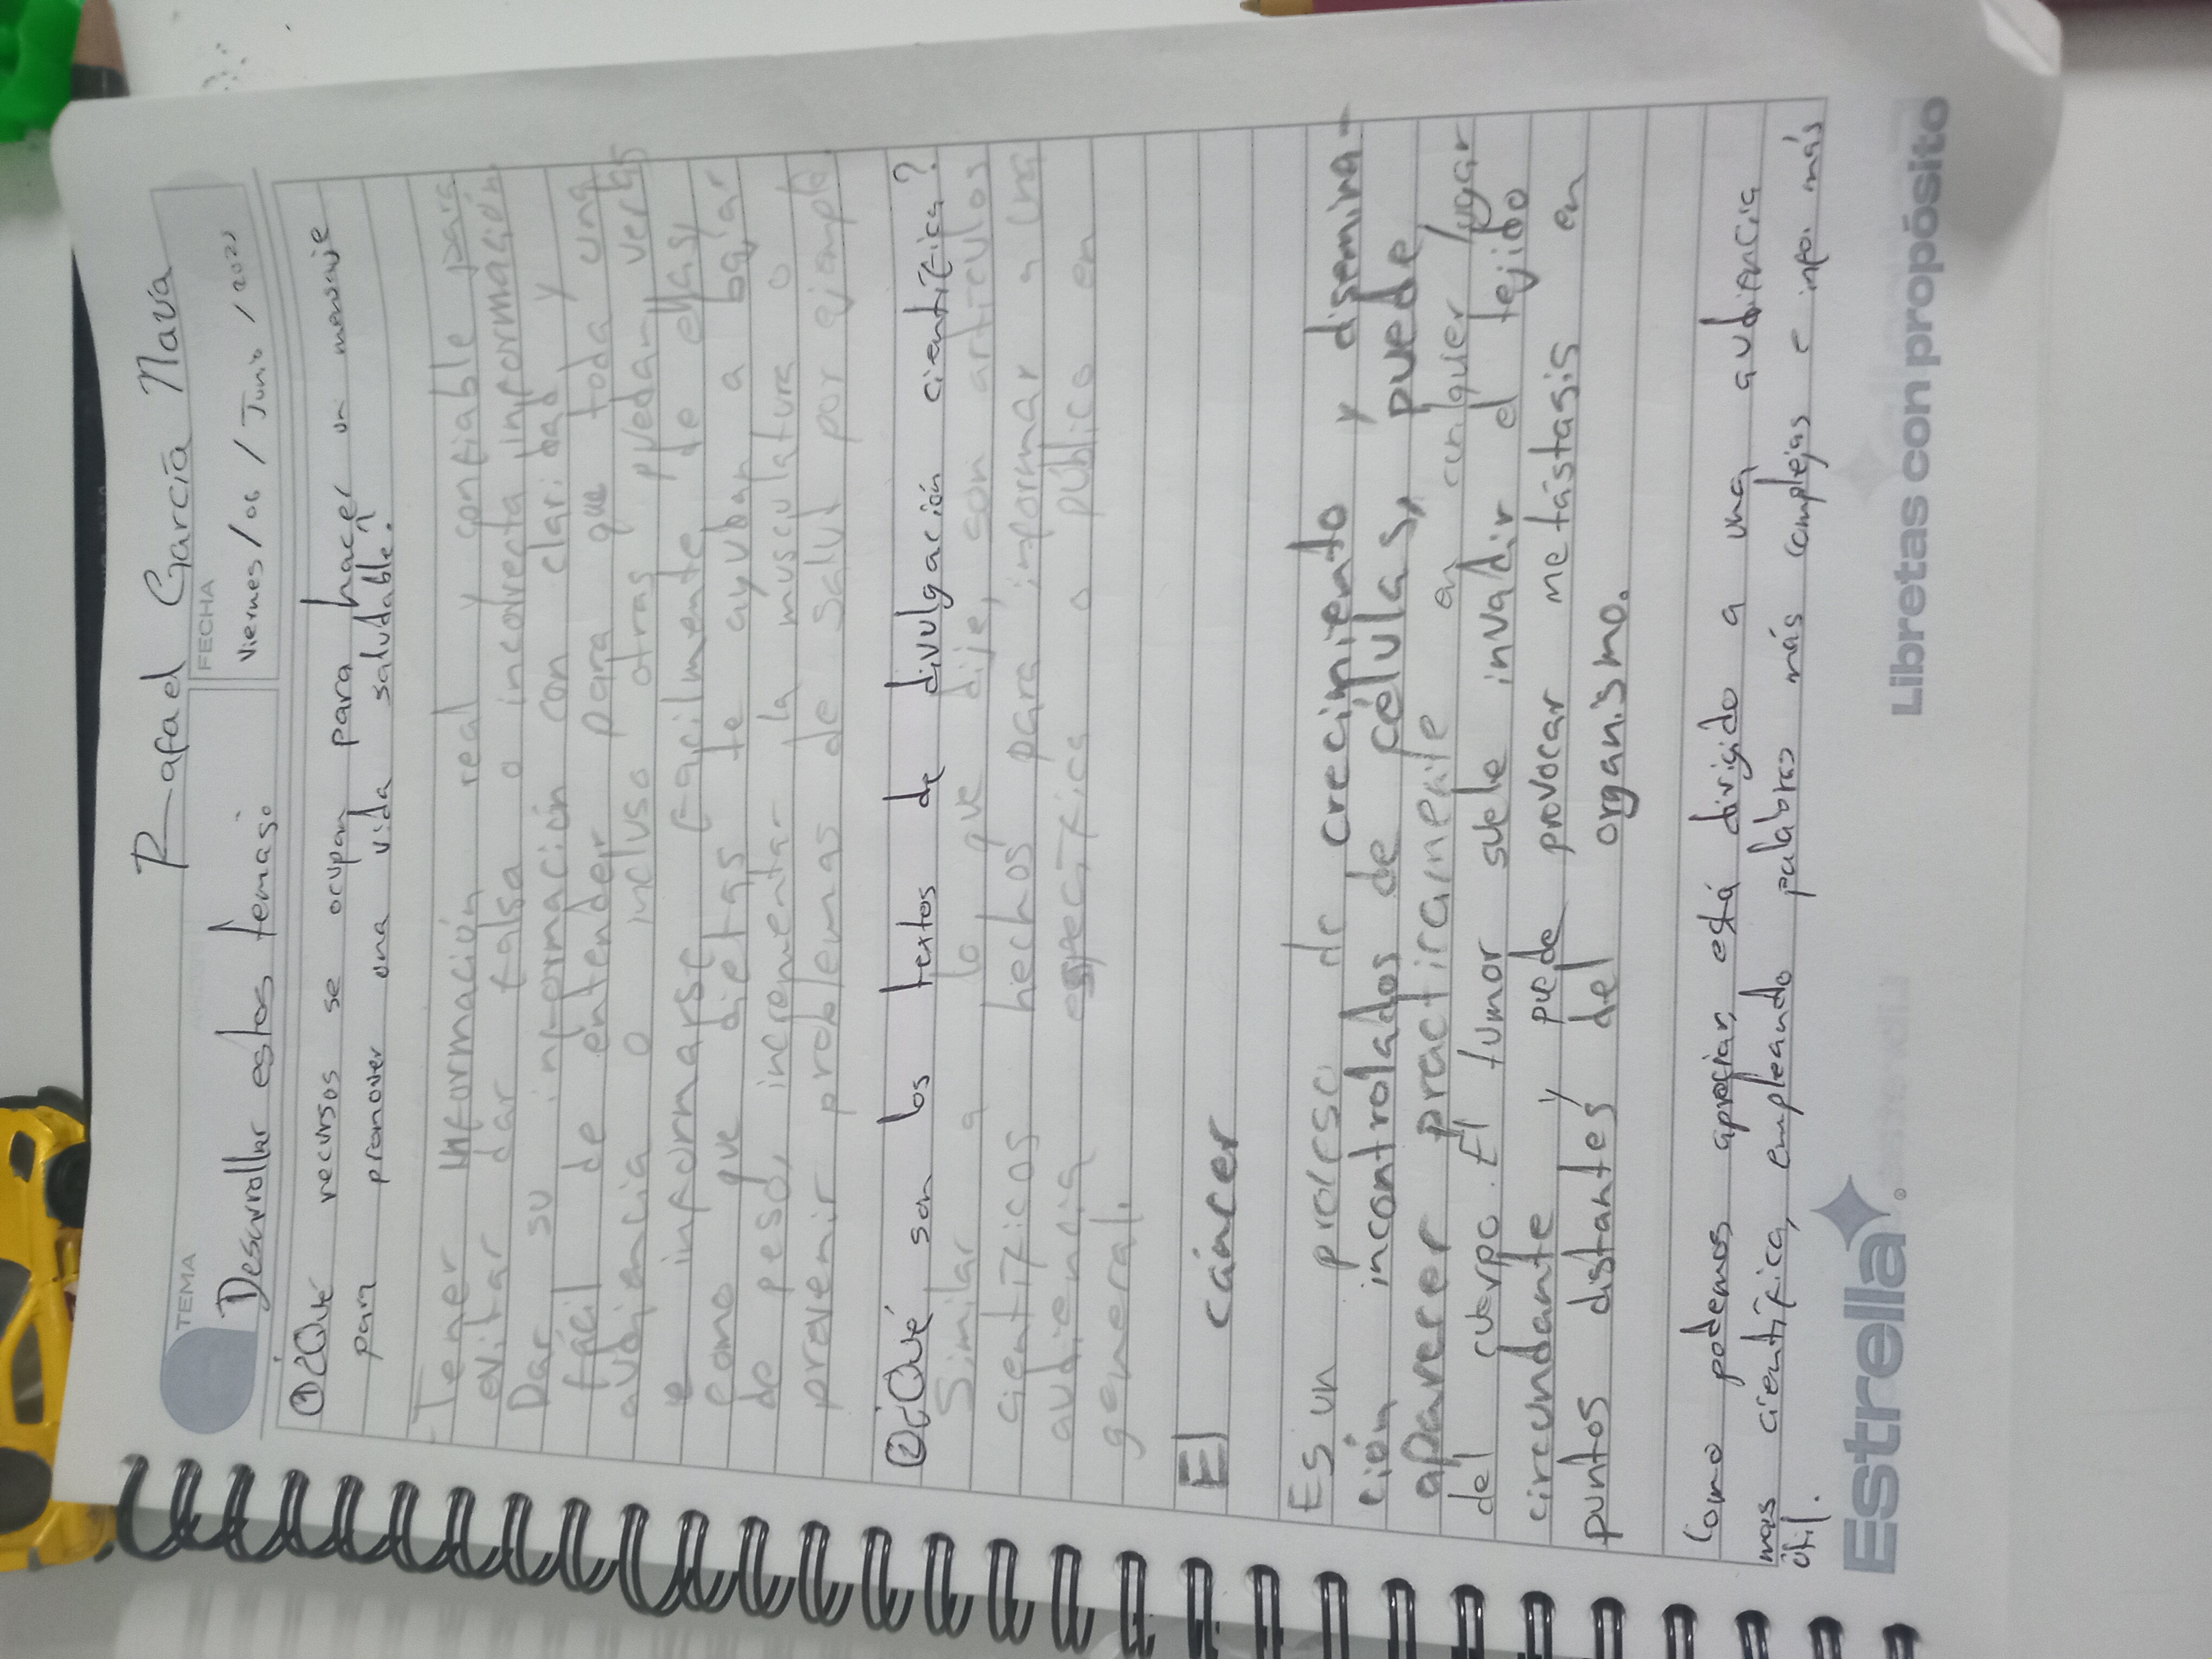 Rafael García Nava
TEMA
FECHA
Desarrollar estos temas:
Viernes / 06 / Junio / 2025
① ¿Qué recursos se ocupan para hacer un mensaje
para promover una vida saludable?
Tener información real y confiable para
evitar dar falsa o incorrecta información
Dar su información con claridad y
fácil de entender para que toda una
audiencia o incluso otras puedan verlas
e informarse fácilmente de ellas,
como que dietas te ayudan a bajar
de peso, incrementar la musculatura o
prevenir problemas de salud por ejemplo
② ¿Qué son los textos de divulgación científica?
Similar a lo que dije, son artículos
científicos hechos para informar a una
audiencia específica o público en
general.
El cáncer
Es un proceso de crecimiento y disemina-
ción incontrolados de células, puede
aparecer practicamente en cualquier lugar
del cuerpo. El tumor suele invadir el tejido
circundante y puede provocar metástasis en
puntos distantes del organismo.
Como podemos apreciar, está dirigido a una audiencia
mas científica, empleando palabras más complejas e info. más
útil.
Estrella®
Libretas con propósito